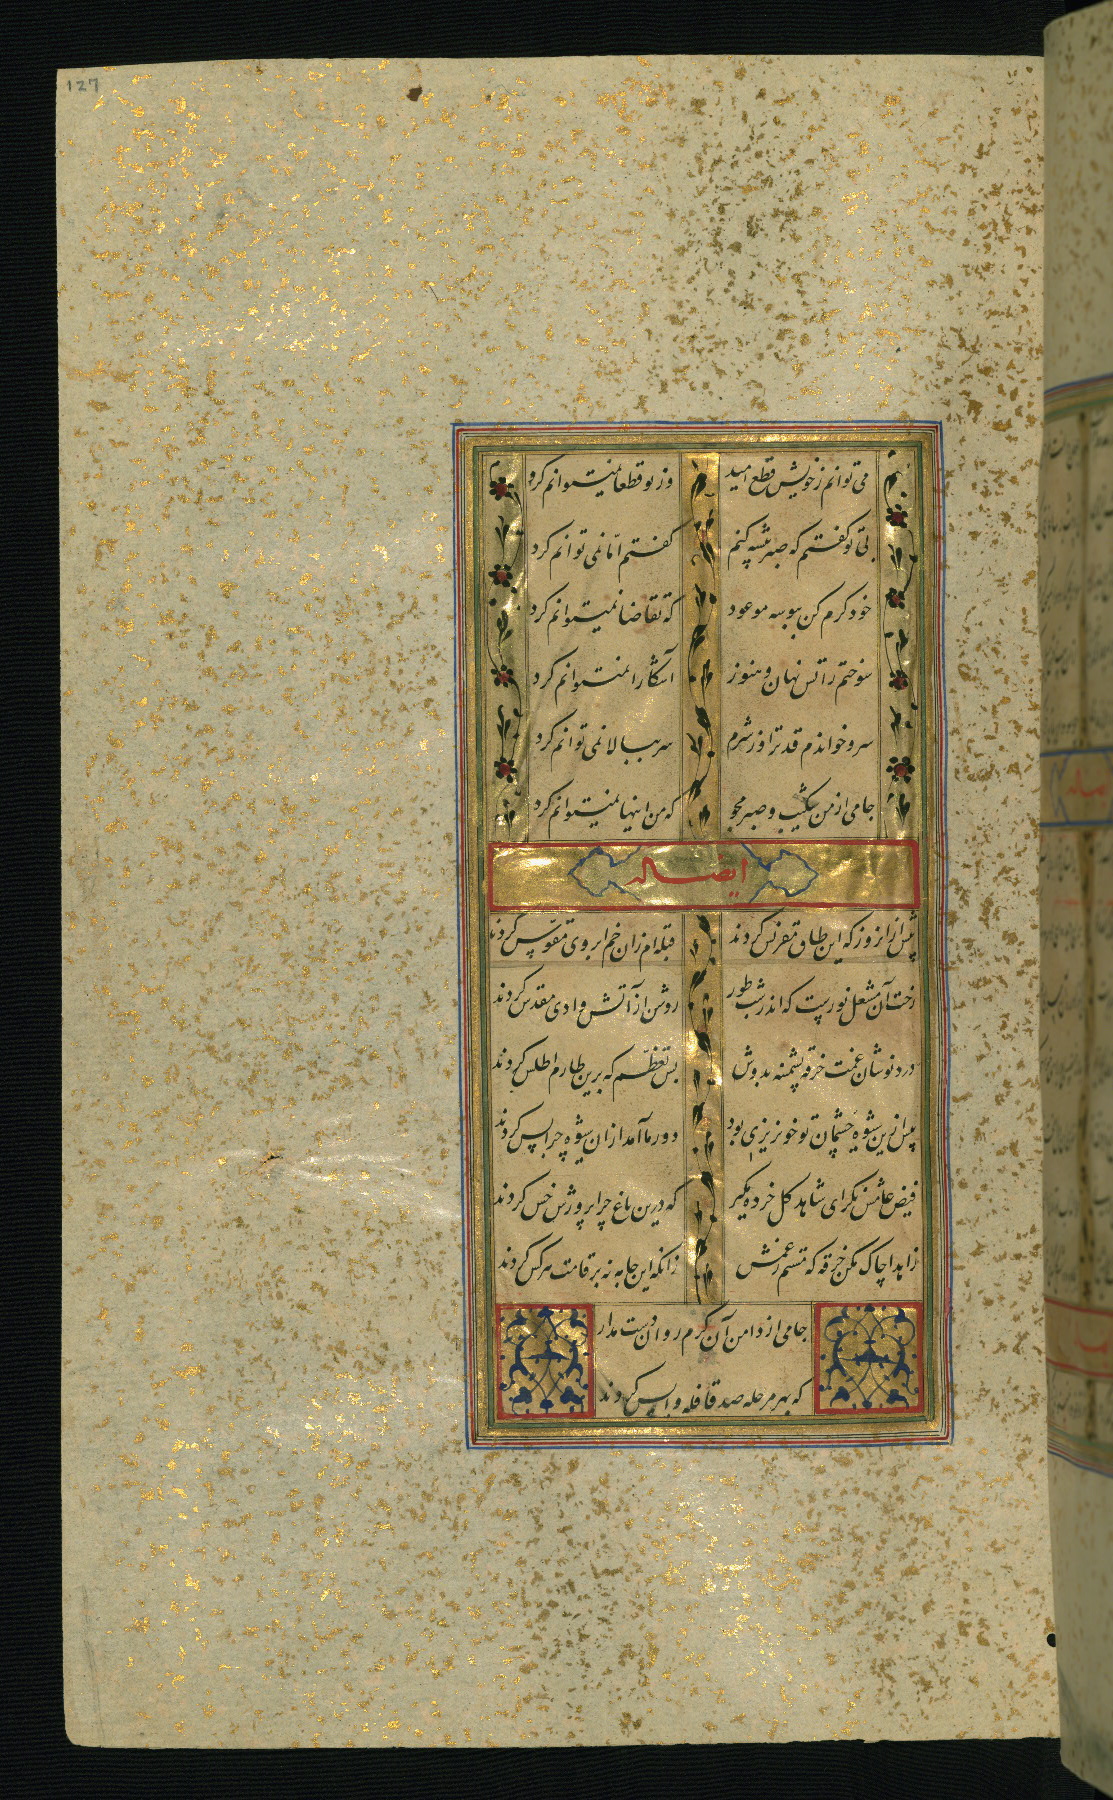 127
می توانم ز خویش قطع امید وز تو قطعا نمیتوانم کرد
بی تو گفتم که صبر پیشه کنم گفتم اما نمی توانم کرد
خود کرم کن ببوسه موعود که تقاضا نمیتوانم کرد
سوختم ز آتش نهان و هنوز آشکارا نمیتوانم کرد
سرو خواندم قد ترا وز شرم سر ببالا نمی توانم کرد
جامی از من شکیب و صبر مجو که من اینها نمیتوانم کرد
ایضا له
پیش از انروز که این طاق مقرنس کردند قبله ام زان خم ابروی مقوس کردند
رخت آن مشعل نوریست که اندر شب طور روشن از آتش وادی مقدس کردند
درد نوشان غمت خرقه پشمینه بدوش بس تعظم که برین طارم اطلس کردند
پیش ازین شیوه چشمان تو خونریزی بود دور ما آمد ازان شیوه چرا پس کردند
فیض عامش نگر ای شاهد گل خرده مگیر که درین باغ چرا پرورش خس کردند
زاهدا چاک مکن خرقه که تسم غمش زانکه این جامه نه بر قامت هر کس کردند
جامی از دامن آن گرم روان دست مدار
که بهر مرحله صد قافله واپس کردند